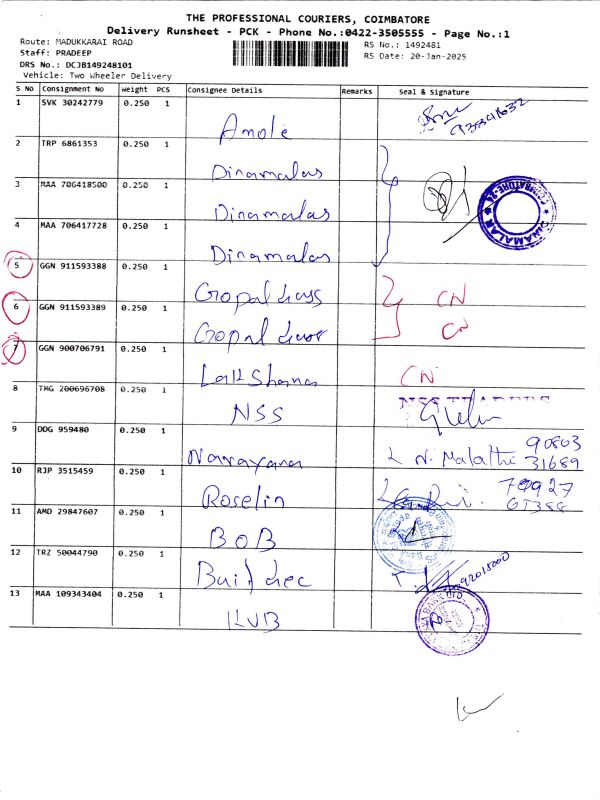 THE PROFESSIONAL COURIERS, COIMBATORE
Delivery Runsheet - PCK - Phone No.:0422-3505555 - Page No.:1
Route: MADUKKARAI ROAD
RS No.: 1492481
Staff: PRADEEP
RS Date: 20-Jan-2025
DRS No.: DCJB149248101
Vehicle: Two Wheeler Delivery
S No Consignment No Weight PCS Consignee Details Remarks Seal & Signature
1 SVK 30242779 0.250 1
Amole
2 TRP 6861353 0.250 1
Dinamalas
3 MAA 706418500 0.250 1
Dinamalas
4 MAA 706417728 0.250 1
Dinamalas
DINAMALAR COIMBATORE
5 GGN 911593388 0.250 1
Gopal CN
6 GGN 911593389 0.250 1
Gopal CN
7 GGN 900706791 0.250 1
Lakshana CN
8 TMG 200696708 0.250 1
NSS
NSS TRADERS
9 DDG 959480 0.250 1
Narayana N. Malathi 90803 31689
10 RJP 3515459 0.250 1
Roselin
11 AMD 29847607 0.250 1
BOB
12 TRZ 50044790 0.250 1
13 MAA 109343404 0.250 1
KVB